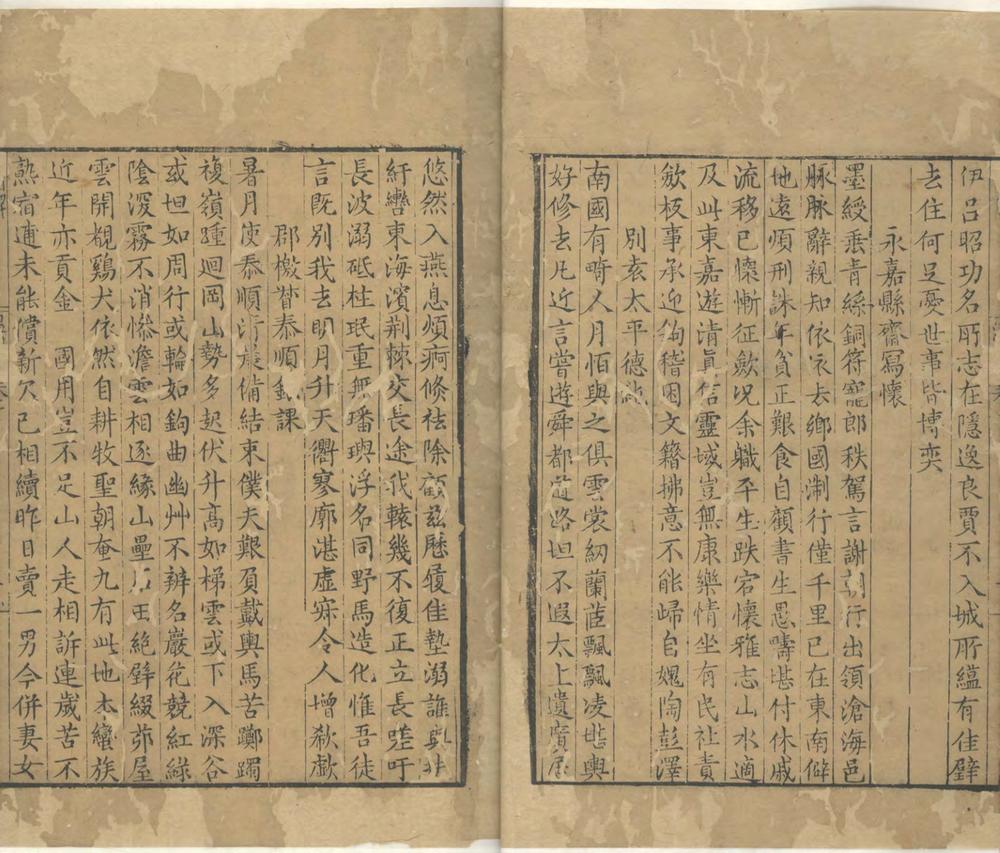 伊呂昭功名所志在隱逸良賈不入城所蘊有佳璧
去住何足憂世事皆博奕
永嘉縣齋寫懷
墨綬垂青絲銅符寵郎秩駕言謝朝行出領滄海邑
脉脉辭親知依依去鄉國淛行僅千里已在東南僻
地遠煩刑誅年貧正艱食自顧書生愚疇堪付休戚
流移已懷慚征歛况余職平生跌宕懷雅志山水適
及此東嘉遊清真信靈域豈無康樂情坐有民社責
歛板事承迎鉤稽困文籍拂意不能歸自媿陶彭澤
別袁太平德純
南國有畸人月怕與之俱雲裳紉蘭茝飄飄凌
好修去凡近言嘗遊舜都道路坦不遐太上遺廣居
悠然入燕息煩痾倏祛除顧兹歷履佳墊溺誰與
紆轡東海濱荆棘交長途我轅幾不復正立長嗟吁
長波溺砥柱珉重無璠璵浮名同野馬造化惟吾徒
言既別我去明月升天衢寥廓湛虛寂令人增欷歔
郡檄督泰順銀課
暑月使泰順沂晨備結束僕夫艱負戴輿馬苦躑躅
複嶺踵迴岡山勢多起伏升高如梯雲或下入深谷
或坦如周行或輪如鉤曲幽艸不辨名巖花競紅綠
陰深霧不消慘澹雲相逐緣山壘石王絶壁綴茆屋
雲開覩鷄犬依然自耕牧聖朝奄九有此地本蠻族
近年亦貢金 國用豈不足山人走相訴連歲苦不
熟宿逋未能償新欠已相續昨日賣一男今併妻女